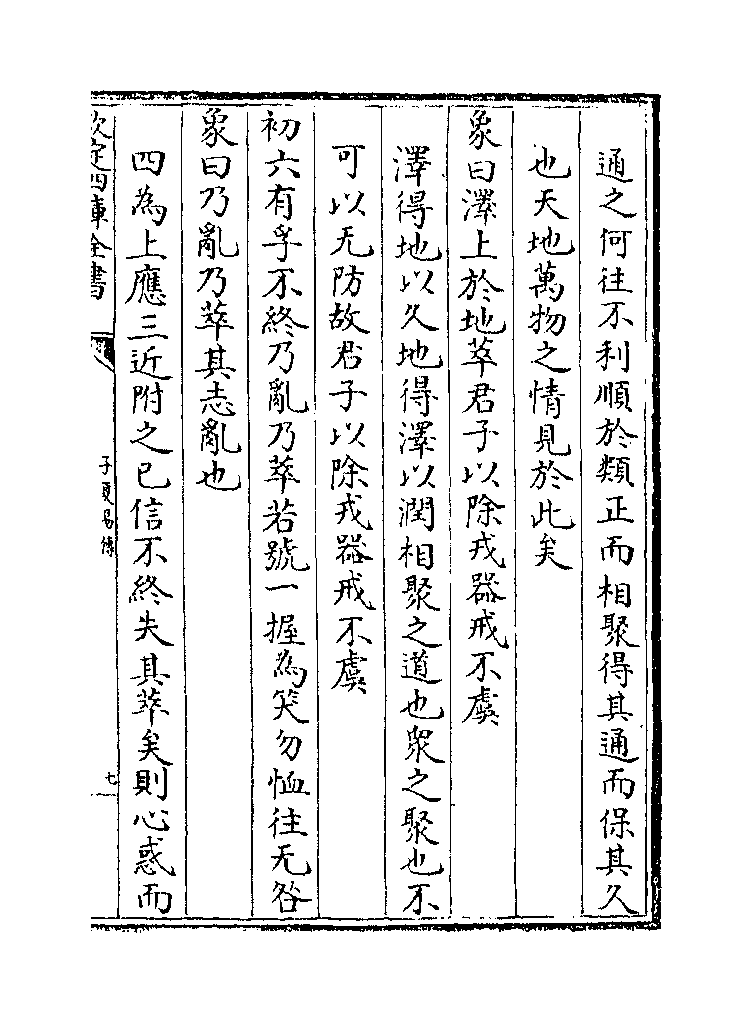 通之何往不利順於類正而相聚得其通而保其久
也天地萬物之情見於此矣
象曰澤上於地萃君子以除戎器戒不虞
澤得地以久地得澤以潤相聚之道也衆之聚也不
可以无防故君子以除戎器戒不虞
初六有孚不終乃亂乃萃若號一握為笑勿恤往无咎
象曰乃亂乃萃其志亂也
四為上應三近附之已信不終失其萃矣則心惑而
欽定四庫全書
子夏易傳
七